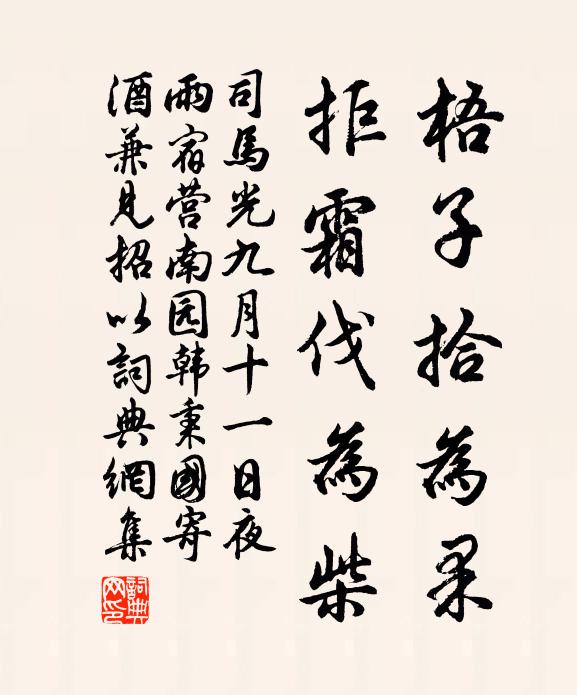 梧子拾為果
拒霜伐為柴
司馬光九月十一日夜
雨宿营南园韩秉國寄
酒兼見招以詞典網集
詞典网印